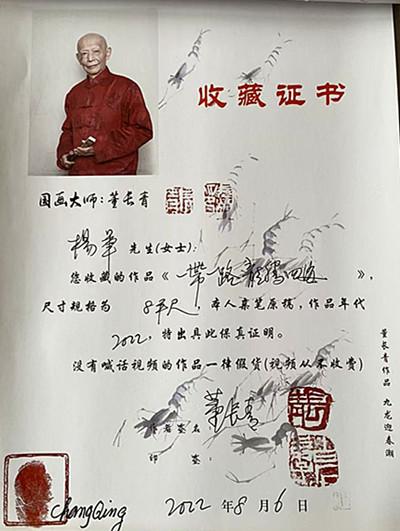 收藏证书
国画大师:董长青
楊華 先生(女士):
您收藏的作品《一帶一路龍騰四海》,
尺寸规格为 8平尺, 本人亲笔原稿,作品年代
2022, 特出具此保真证明。
没有喊话视频的作品一律假货(视频从不收费)
董長青
作者签名
印 鉴:
ChangQing
2022 年 8 月 6 日
董长青作品 九龙迎春潮